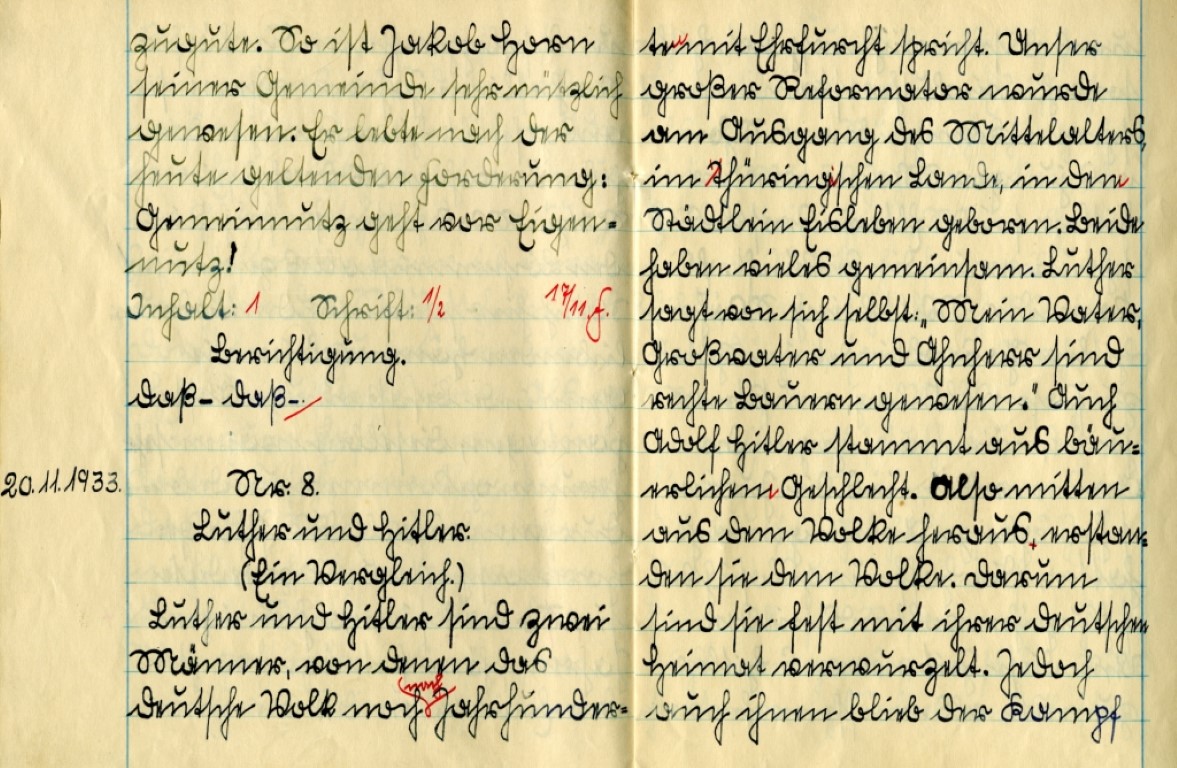 zugute. So ist Jakob Horn
seiner Gemeinde sehr nützlich
gewesen. Er lebte nach der
heute geltenden Forderung:
Gemeinnutz geht vor Eigen=
nutz!
Inhalt: 1 Schrift: 1/2 17/11. f.
Berichtigung.
daß – daß –.
20.11.1933. Nr. 8.
Luther und Hitler.
(Ein Vergleich.)
Luther und Hitler sind zwei
Männer, von denen das
nach
deutsche Volk noch Jahrhunder=
ten mit Ehrfurcht spricht. Unser
großer Reformator wurde
am Ausgang des Mittelalters,
im Thüringischen Lande, in dem
Städtlein Eisleben geboren. Beide
haben vieles gemeinsam. Luther
sagt von sich selbst: „Mein Vater,
Großvater und Ahnherr sind
rechte Bauern gewesen." Auch
Adolf Hitler stammt aus bäu=
erlichem Geschlecht. Also mitten
aus dem Volke heraus, erstan=
den sie dem Volke. Darum
sind sie fest mit ihrer deutschen
Heimat verwurzelt. Jedoch
auch ihnen blieb der Kampf